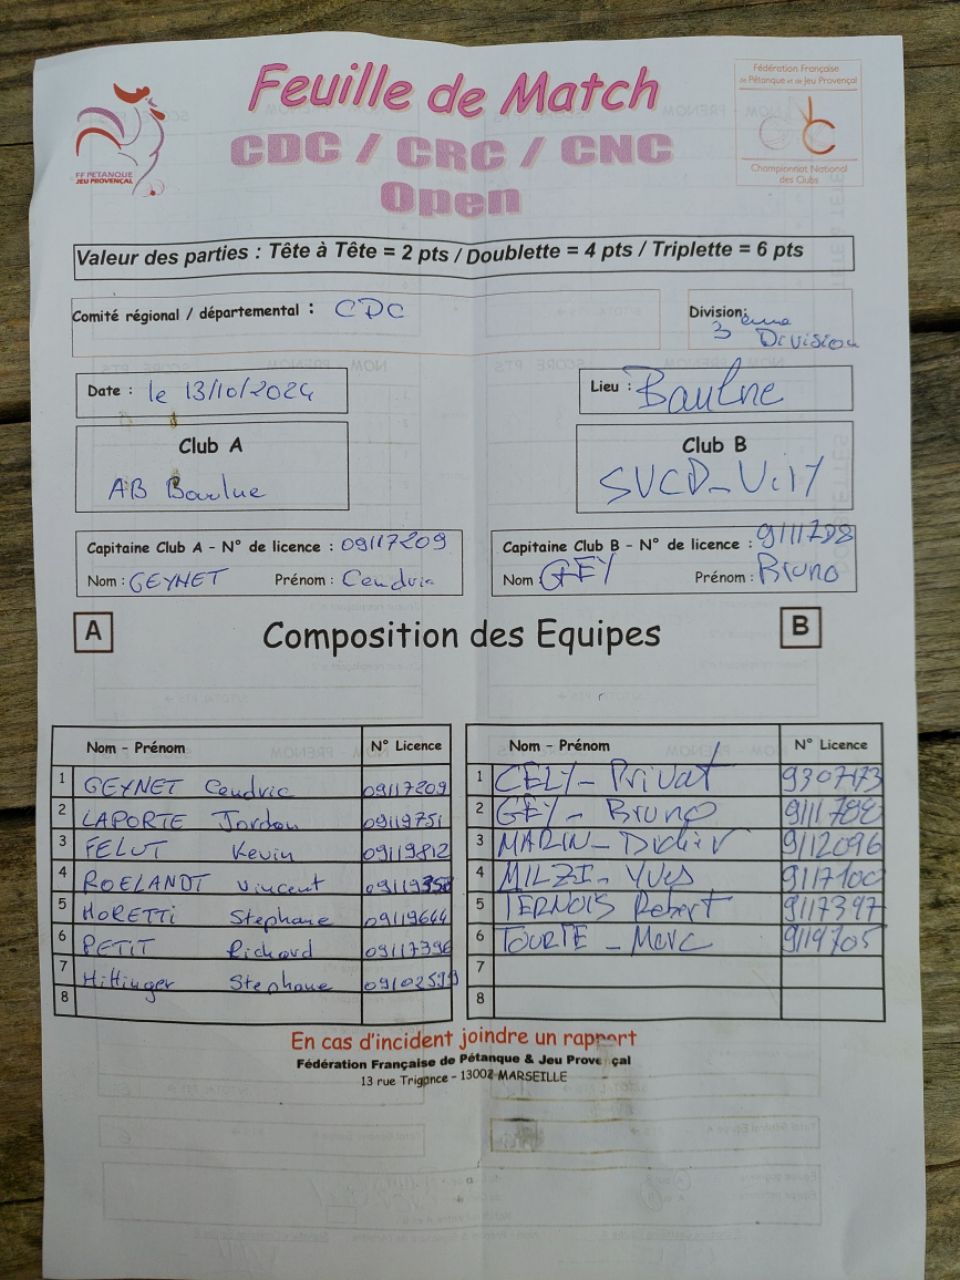 Feuille de Match
CDC / CRC / CNC
Open
FF PETANQUE
JEU PROVENÇAL
Fédération Française
de Pétanque et de Jeu Provençal
Championnat National
des Clubs
Valeur des parties : Tête à Tête = 2 pts / Doublette = 4 pts / Triplette = 6 pts
Comité régional / départemental : CDC
Division: 3ème
Division
Date : le 13/10/2024
Lieu : Baulne
Club A
AB Baulne
Club B
SUCD_Vily
Capitaine Club A - N° de licence : 09117209
Nom : GEYNET Prénom : Cendric
Capitaine Club B - N° de licence : 9111788
Nom GEY Prénom : Bruno
A Composition des Equipes B
Nom - Prénom N° Licence
1 GEYNET Cendric 09117209
2 LAPORTE Jordan 09119751
3 FELUT Kevin 09119812
4 ROELANDT Vincent
5 MORETTi Stephane 09119644
6 PETIT Richard 09117396
7 Hittinger Stephane
8
Nom - Prénom N° Licence
1 CELY_ Privat 9307173
2 GEY_ Bruno 9111788
3 MARIN_ Didier 9112096
4 MILZI_ YVes 9117100
5 TERNOIS Robert 9117397
6 TOURTE _ Marc 9119705
7
8
En cas d'incident joindre un rapport
Fédération Française de Pétanque & Jeu Provençal
13 rue Trigance - 13002 MARSEILLE